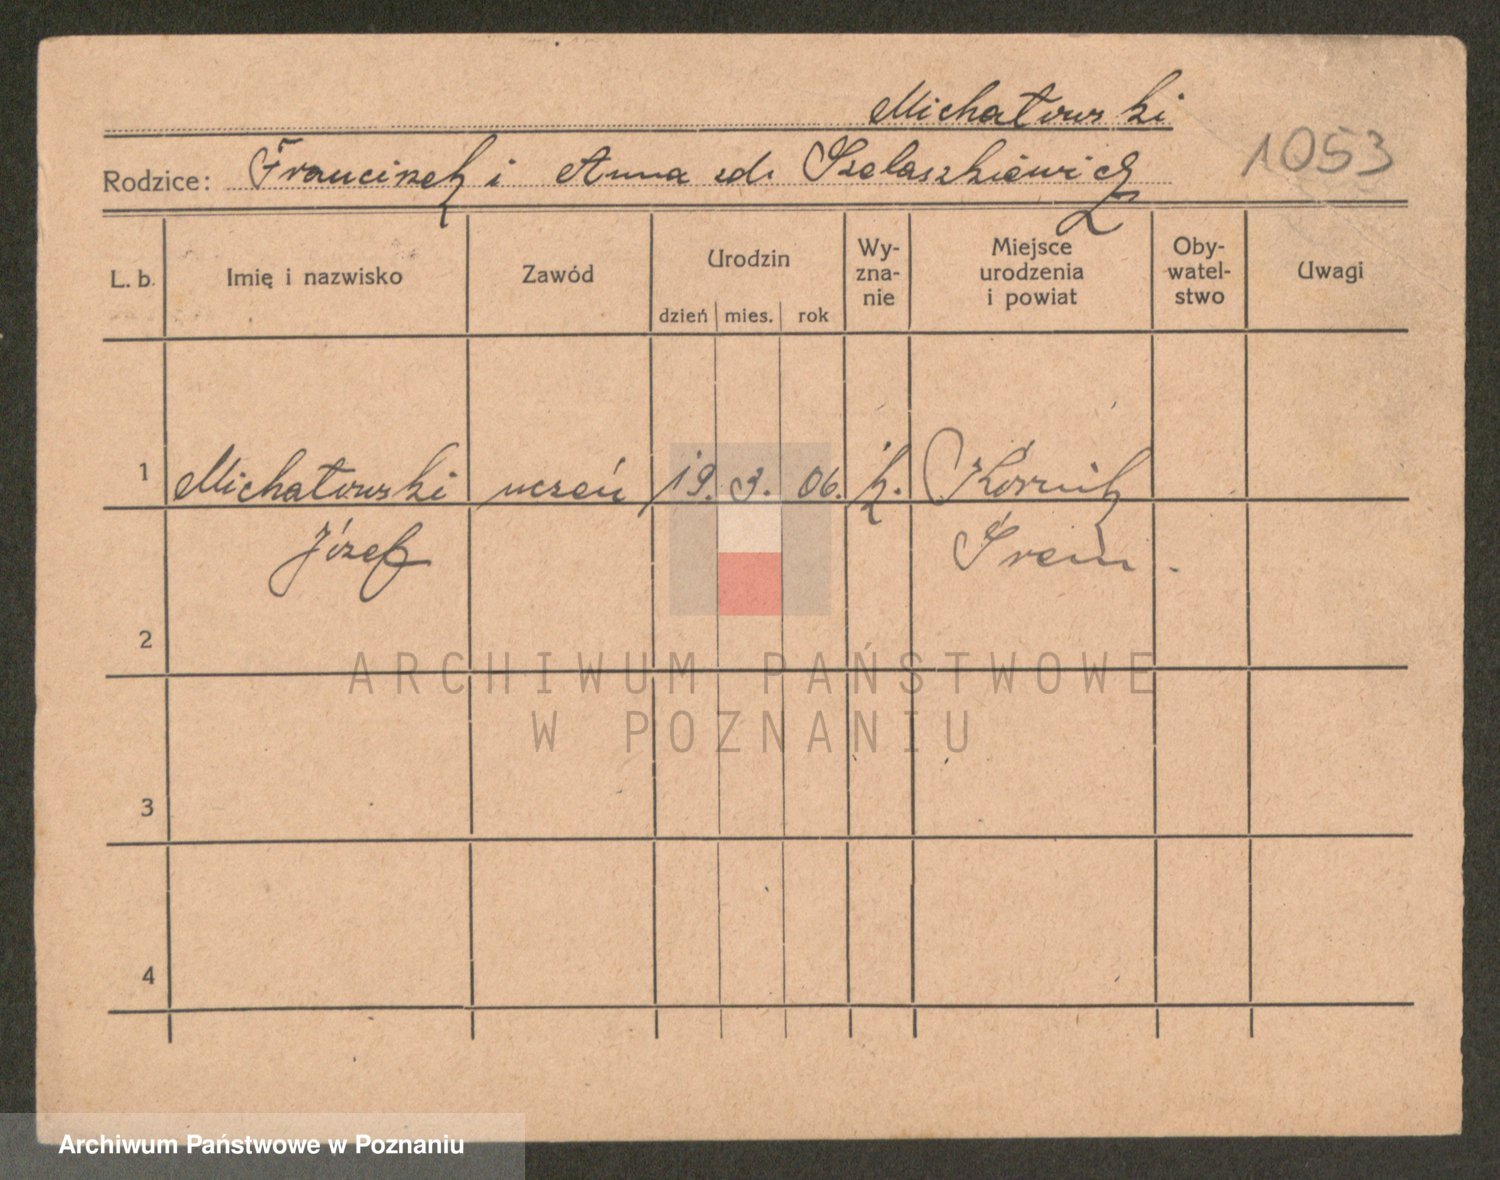 Michałowski
Rodzice: Franciszek i Anna zd. Szelaszkiewicz
1053
L. b. Imię i nazwisko Zawód Urodzin dzień mies. rok Wy-zna-nie Miejsce urodzenia i powiat Oby-watel-stwo Uwagi
1 Michałowski uczeń 19. 3. 06. k. Kórnik
Józef Śrem.
2
ARCHIWUM PAŃSTWOWE
W POZNANIU
3
4
Archiwum Państwowe w Poznaniu